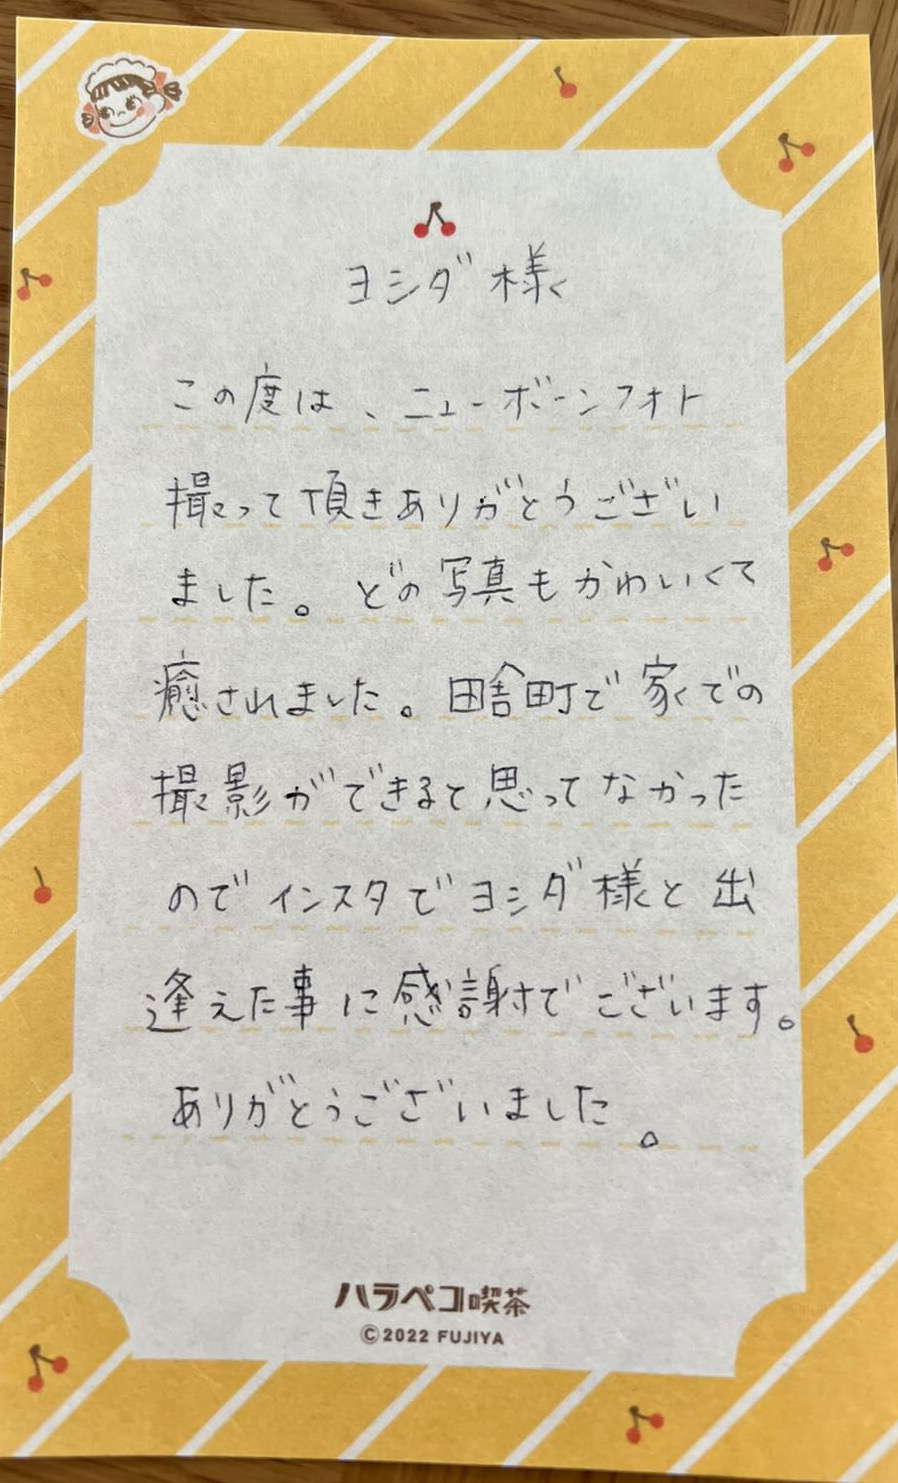 ヨシダ様
この度は、ニューボーンフォト
撮って頂きありがとうござい
ました。どの写真もかわいくて
癒されました。田舎町で家での
撮影ができると思ってなかった
のでインスタでヨシダ様と出
逢えた事に感謝でございます。
ありがとうございました。
ハラペコ喫茶
©2022 FUJIYA